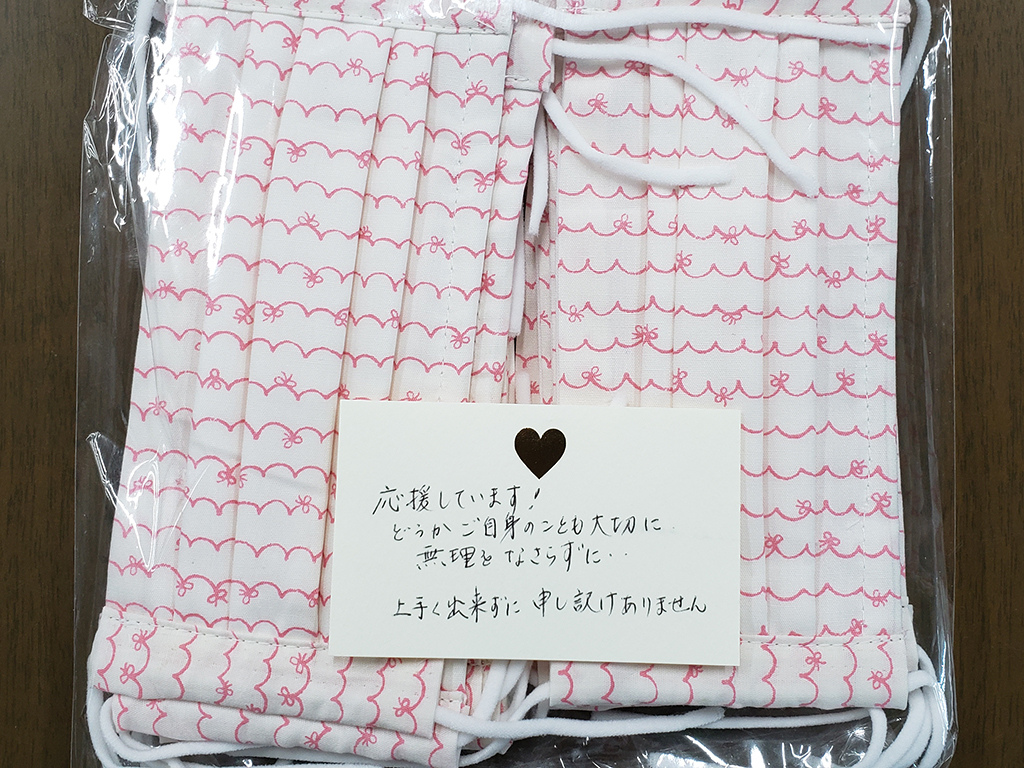 応援しています!
どうかご自身のことも大切に
無理をなさらずに‥
上手く出来ずに申し訳けありません